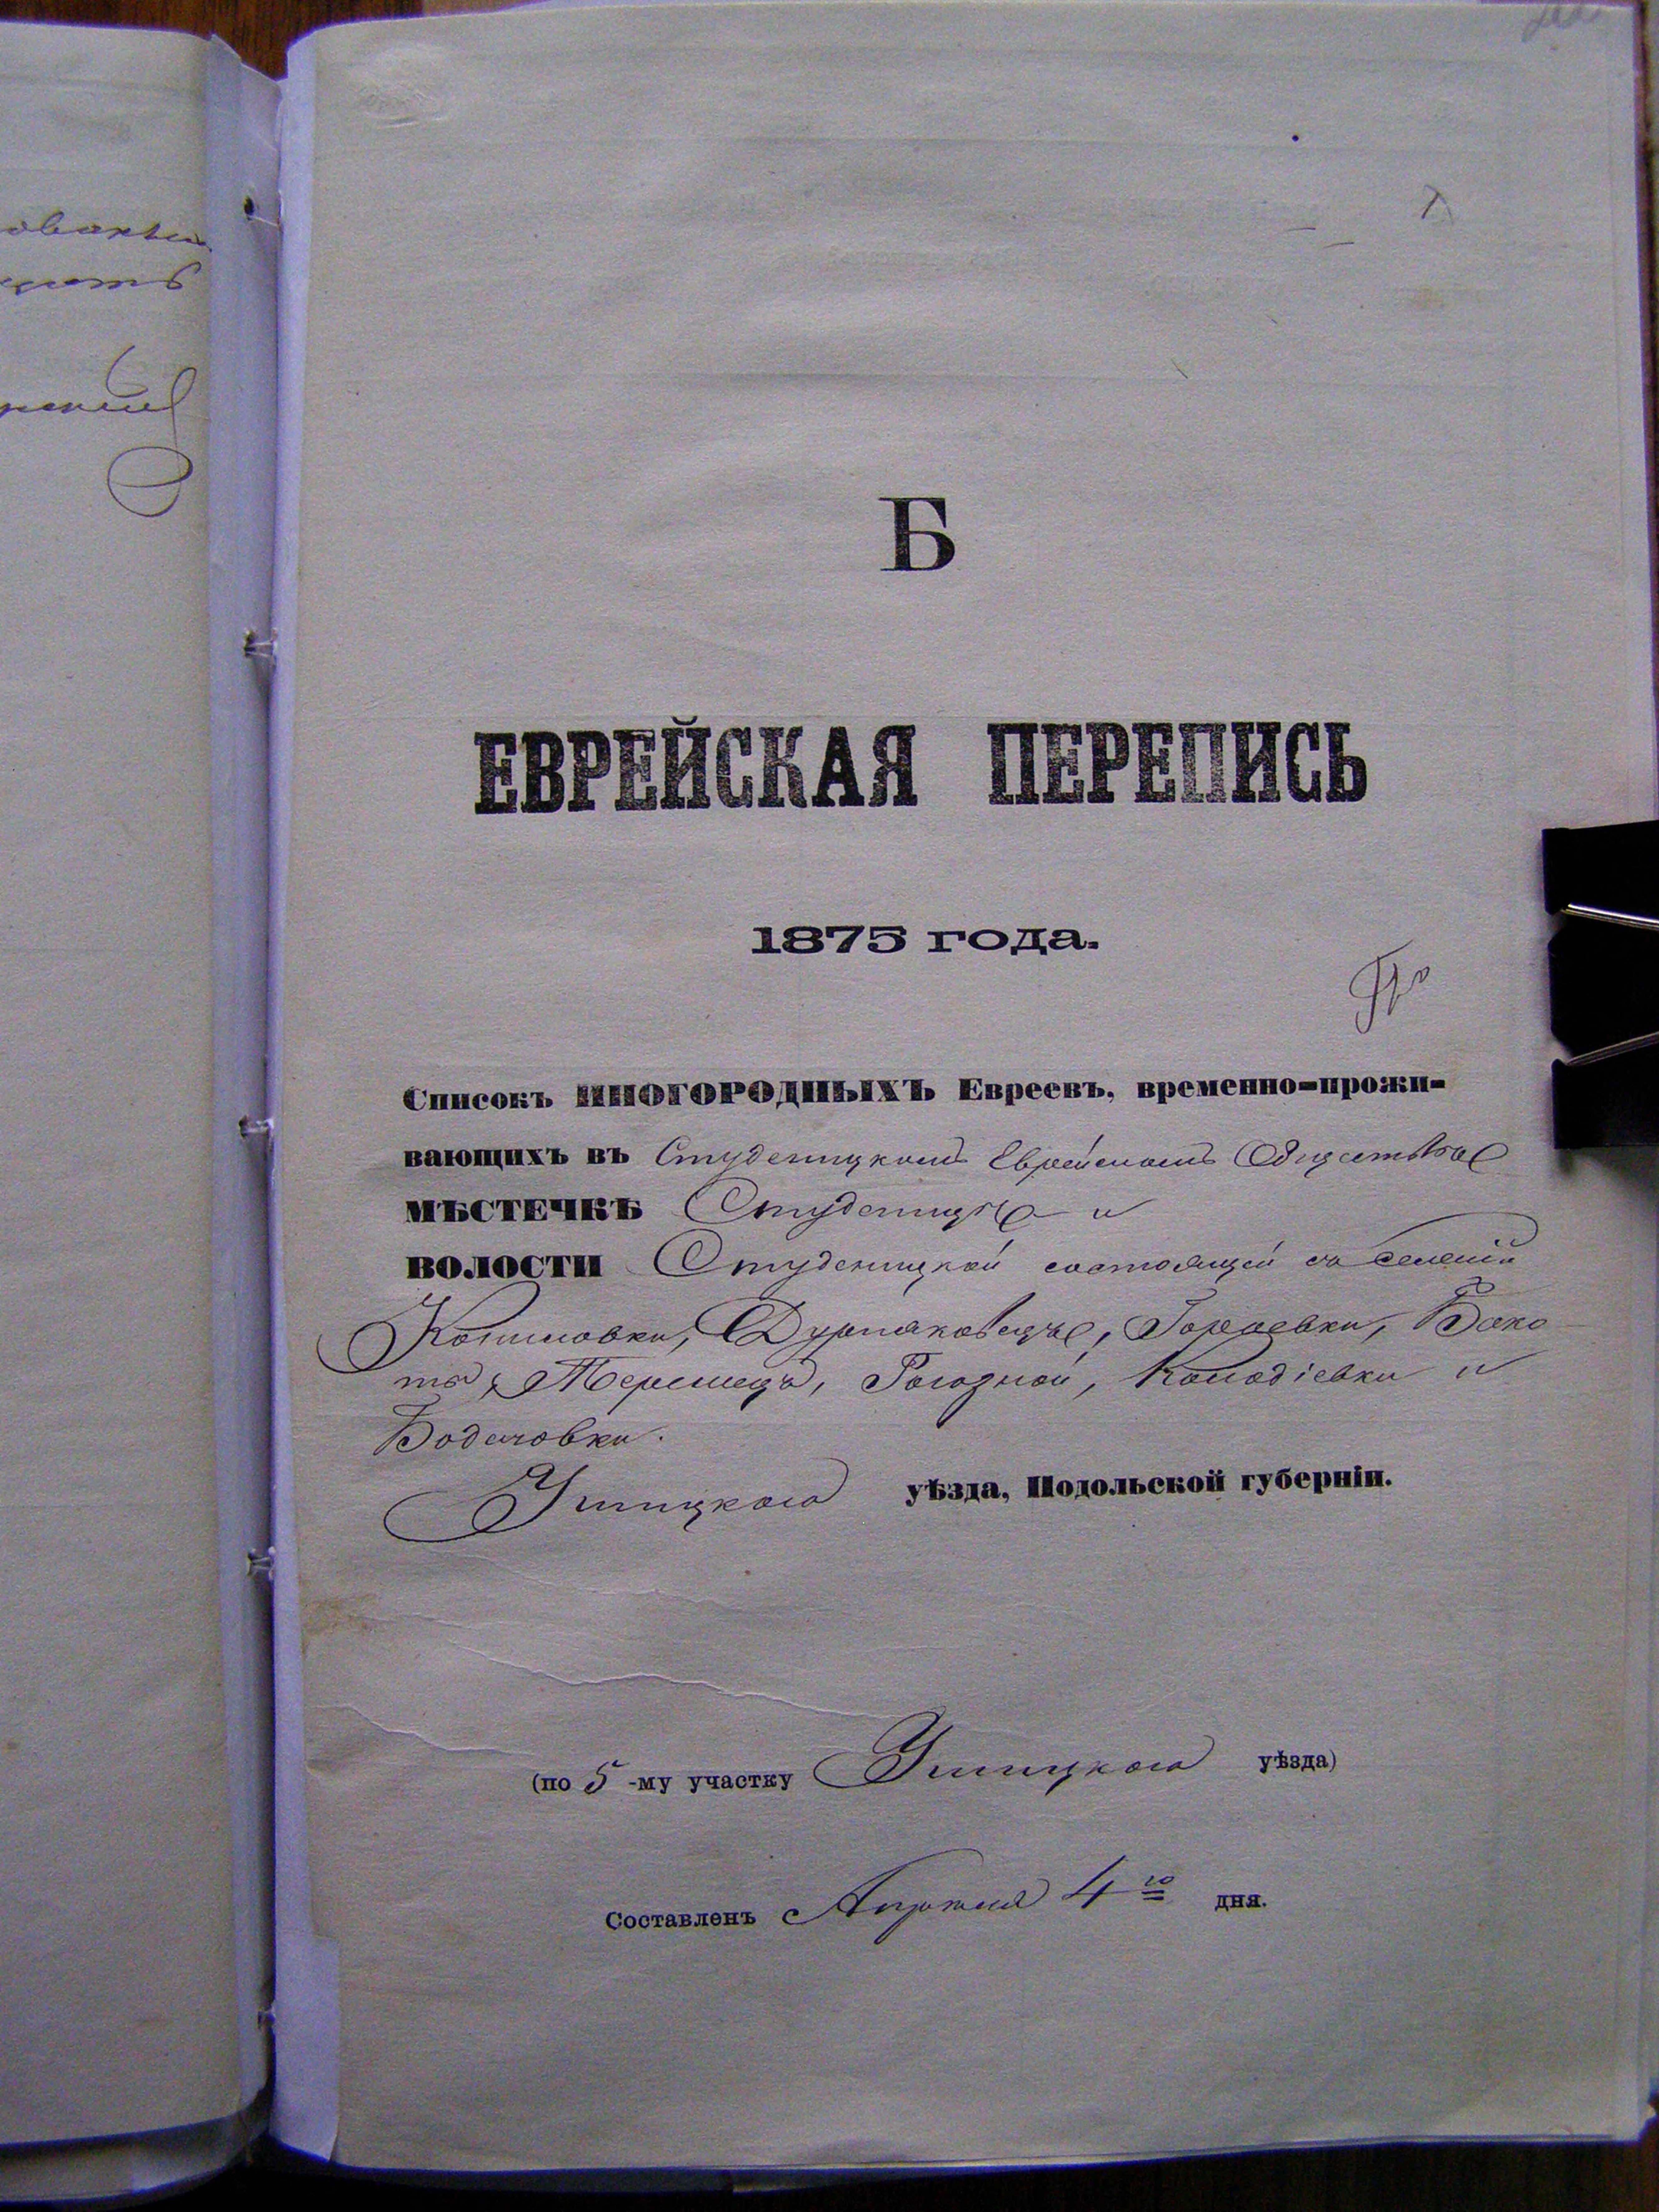 Б
ЕВРЕЙСКАЯ ПЕРЕПИСЬ
1875 года.
По
Списокъ ИНОГОРОДНЫХЪ Евреевъ, временно-прожи-
вающихъ въ Студеницкомъ Еврейскомъ Обществѣ
МѢСТЕЧКѢ Студеницѣ и
ВОЛОСТИ Студеницкой состоящей съ селеній
Комиловки, Дурняковецъ, Гораевки, Бако-
та, Теремецъ, Рогозной, Колодіевки и
Бодачовки.
Ушицкого уѣзда, Подольской губерніи.
(по 5-му участку Ушицкого уѣзда)
Составленъ Апрѣля 4го дня.